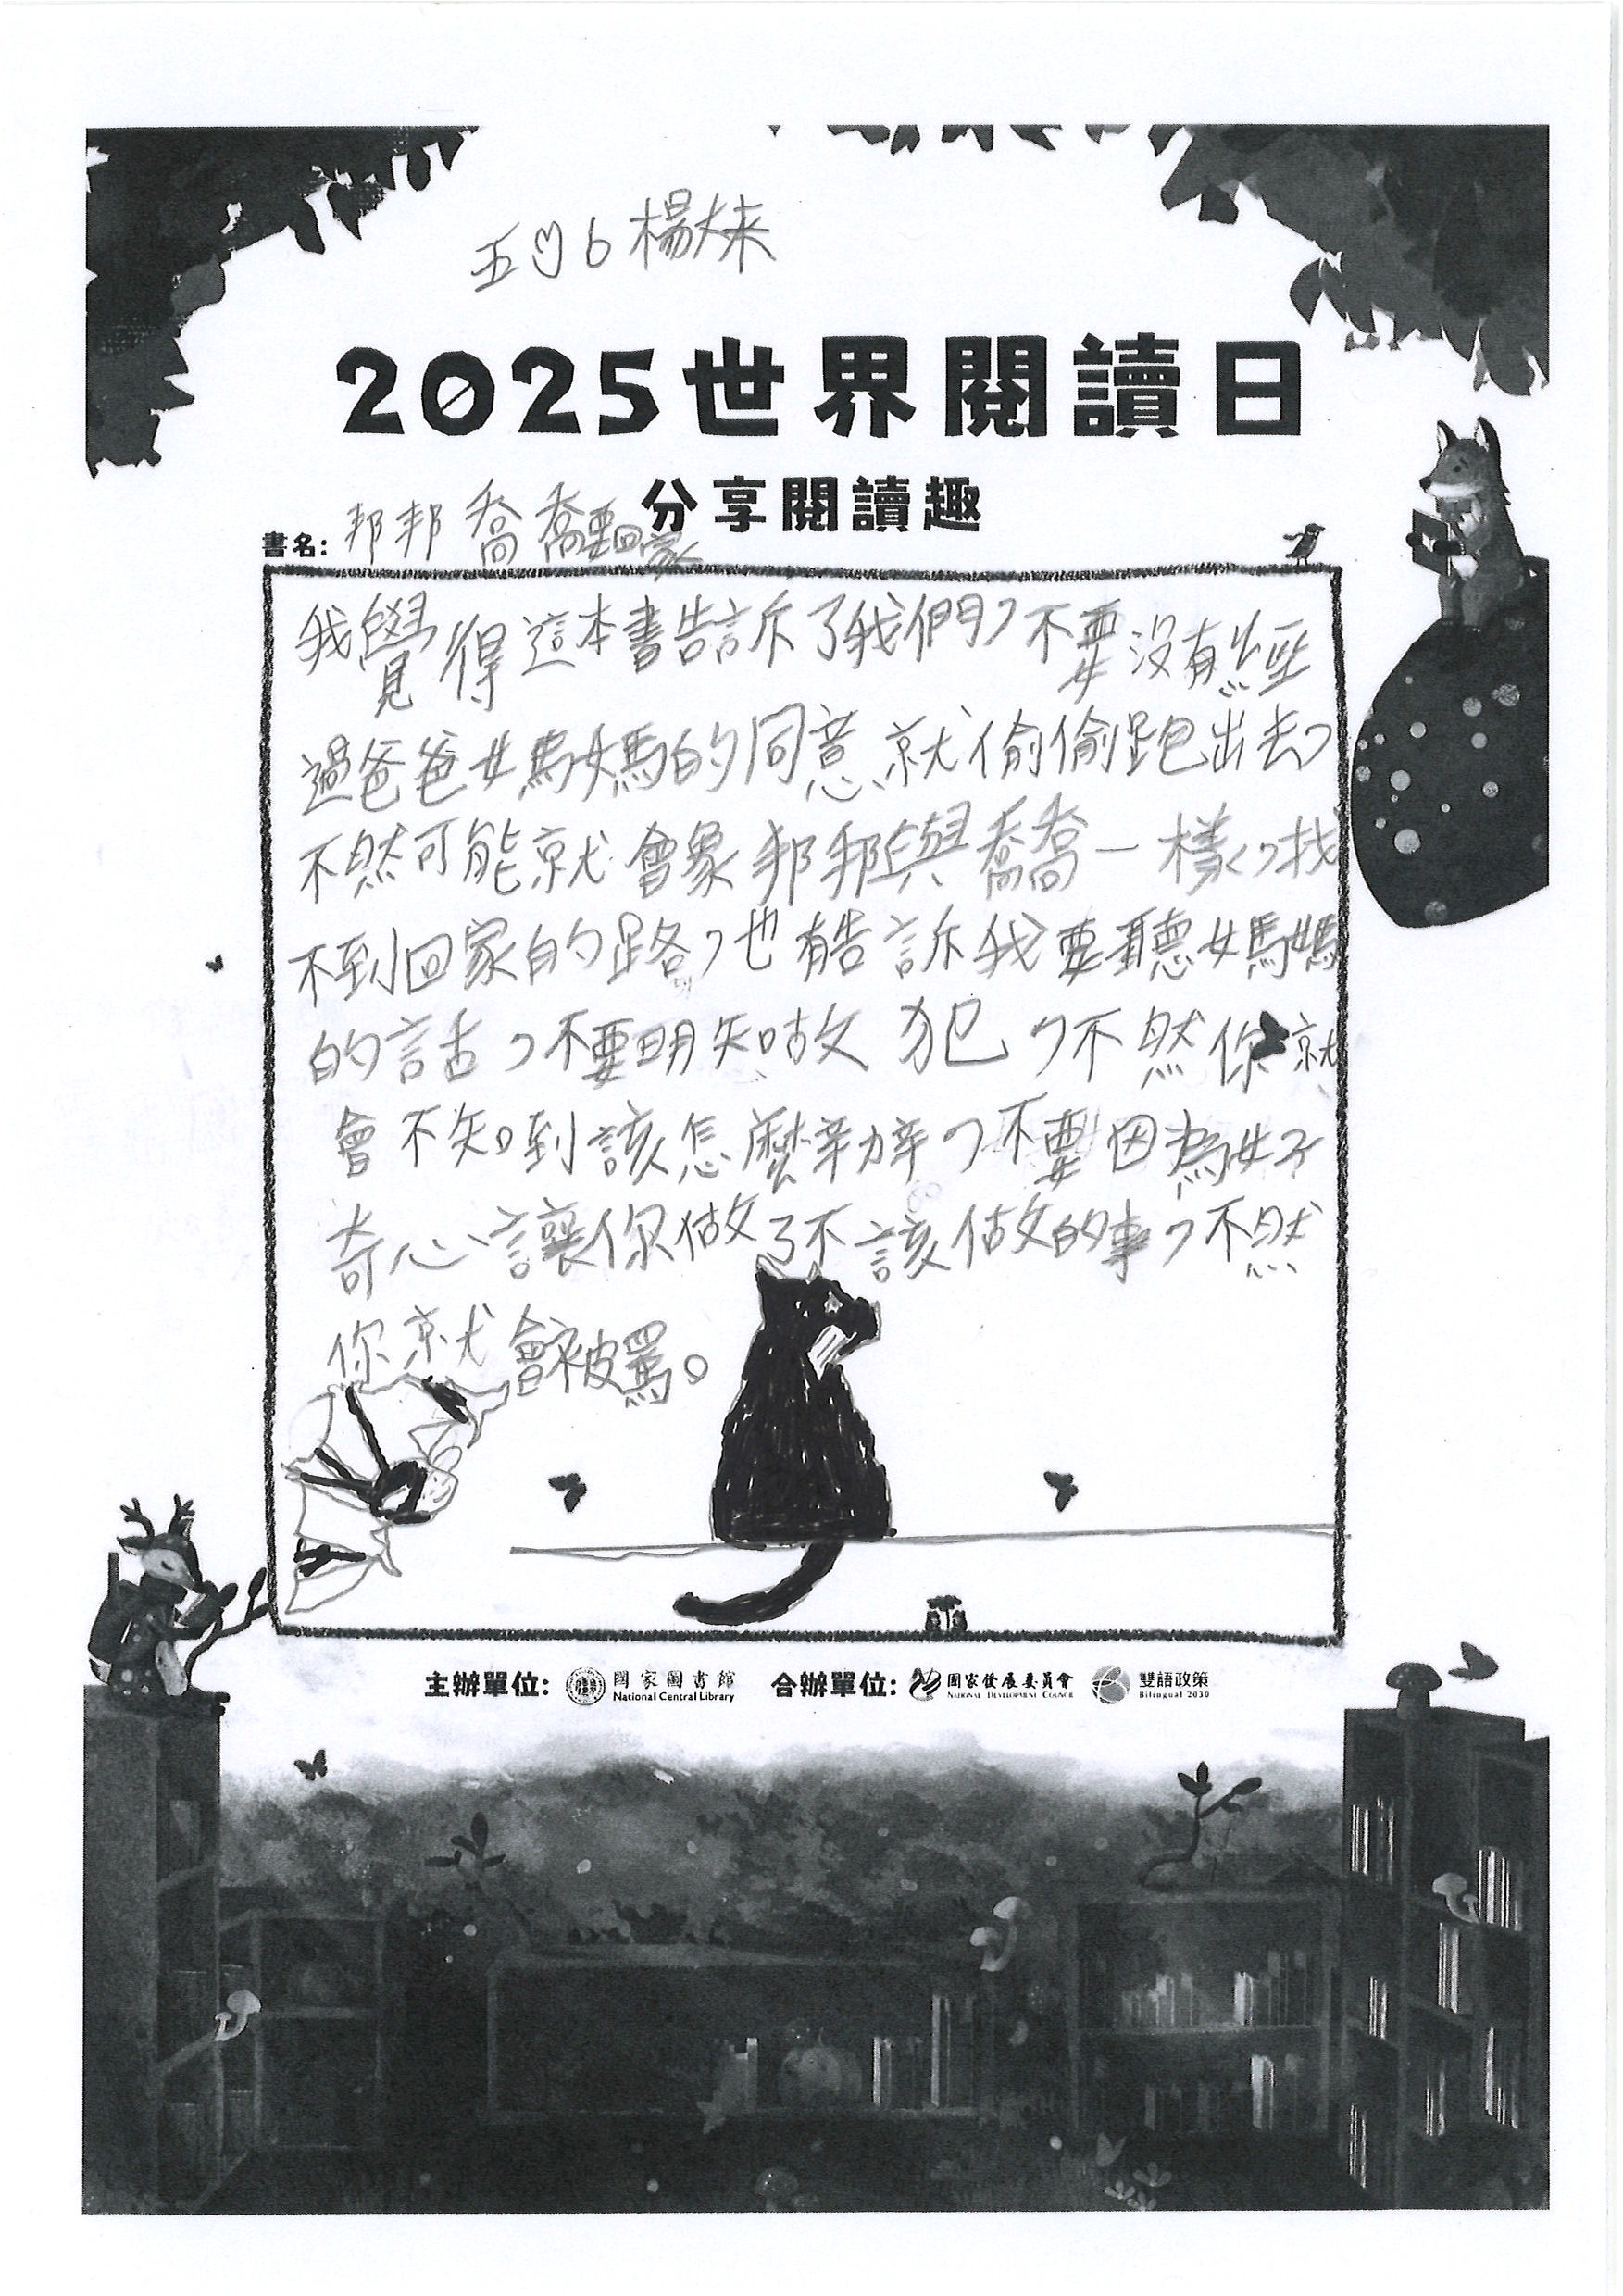 五 6 楊大
2025世界閱讀日
分享閱讀趣
書名: 邦邦喬喬要回家
我覺得這本書告訴了我們,不要沒有經
過爸爸媽媽的同意就偷偷跑出去,
不然可能就會象邦邦與喬喬一樣,找
不到回家的路,也有告訴我要聽媽媽
的話,不要明知故犯,不然你就
會不知到該怎麼辦,不要因為好
奇心讓你做了不該做的事,不然
你就會被罵。
主辦單位: 國家圖書館 National Central Library 合辦單位: 國家發展委員會 NATIONAL DEVELOPMENT COUNCIL 雙語政策 Bilingual 2030